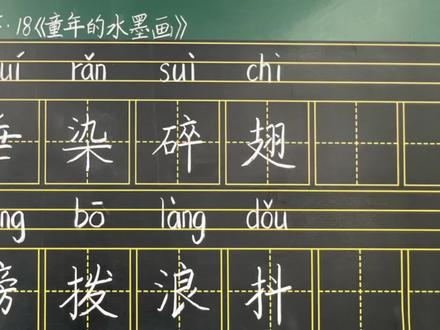 ·18《童年的水墨画》
uí rǎn suì chì
染碎翅
ng bō làng dǒu
拨浪抖